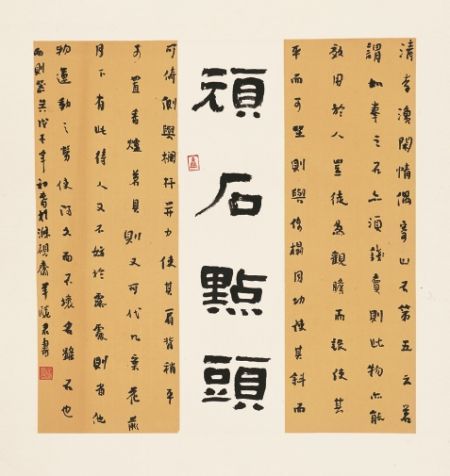 清李漁閑情偶寄山石第五之若
謂如拳之石亦須錢買則此物亦能
效用於人豈徒為觀瞻而設使其
平而可坐則與椅榻同功使其斜而
頑石點頭
可倚則與欄杆並力使其肩背稍平
可置香爐茗具則又可代几案花前
月下有此待人又不妨於露處則省他
物運動之勞使得久而不壞名雖石也
而則器矣戊子年初春於硯齋羊曉君書